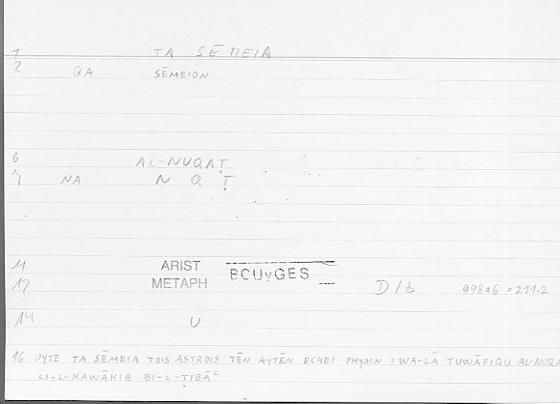 1 TA SĒMEIA
2 QA SĒMEION
6 AL-NUQAṬ
7 NA N Q Ṭ
11 ARIST BCUyGES
12 METAPH D/b 998a6 = 211.2
14 U
16 OYTE TA SĒMEIA TOIS ASTROIS TĒN AYTĒN ECHEI PHYSIN = WA-LĀ TUWĀFIQU AL-NUQA
LI-L-KAWĀKIB BI-L-ṬIBĀᶜ